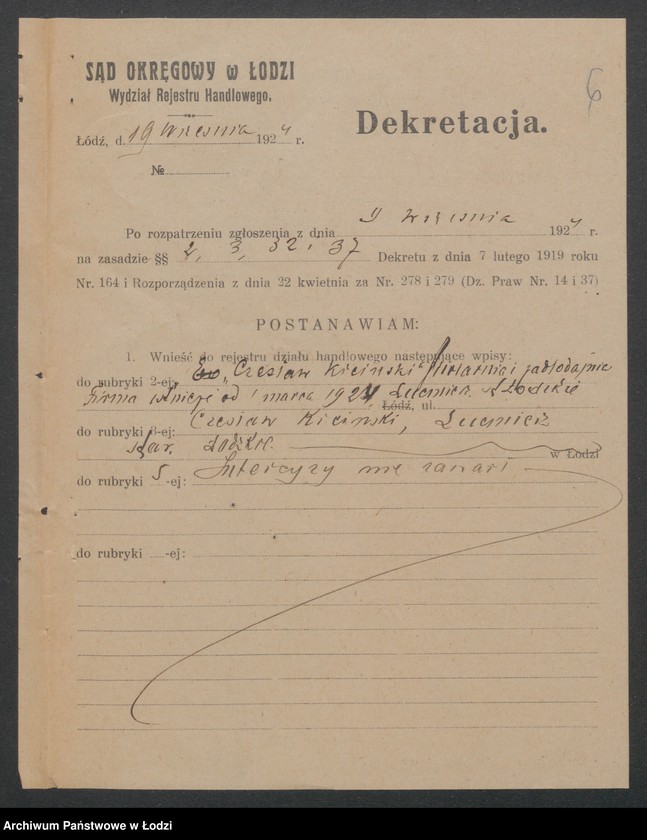 6
SĄD OKRĘGOWY w ŁODZI
Wydział Rejestru Handlowego.
Dekretacja.
Łódź, d. 19 Września 1924 r.
№
Po rozpatrzeniu zgłoszenia z dnia 9 Września 1924 r.
na zasadzie §§ 2, 3, 32 i 37 Dekretu z dnia 7 lutego 1919 roku
Nr. 164 i Rozporządzenia z dnia 22 kwietnia za Nr. 278 i 279 (Dz. Praw Nr. 14 i 37)
POSTANAWIAM:
1. Wnieść do rejestru działu handlowego następujące wpisy:
do rubryki 2-ej: „Czesław Kiciński"
firma istnieje od 1 marca 1924, Łódź, ul.
do rubryki 3-ej: Czesław Kiciński,
w Łodzi
do rubryki 5-ej: Intercyzy nie zawarł
do rubryki -ej:
Archiwum Państwowe w Łodzi